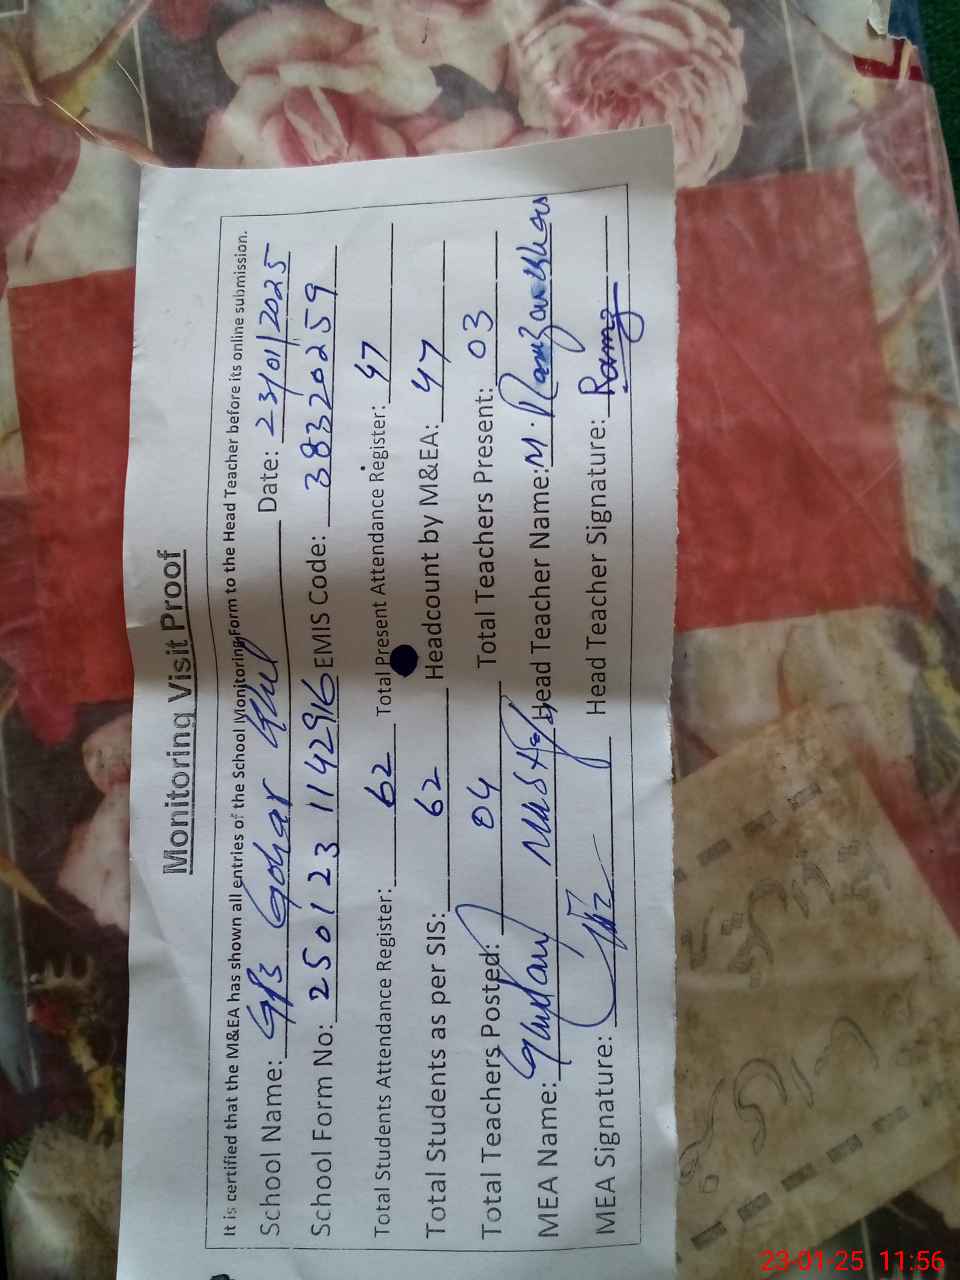 Monitoring Visit Proof
It is certified that the M&EA has shown all entries of the School Monitoring Form to the Head Teacher before its online submission.
School Name: GPS Gohar Gul Date: 23/01/2025
School Form No: 250123 114296 EMIS Code: 38320259
Total Students Attendance Register: 62 Total Present Attendance Register: 47
Total Students as per SIS: 62 Headcount by M&EA: 47
Total Teachers Posted: 04 Total Teachers Present: 03
MEA Name: Ghulam Mustafa Head Teacher Name: M. Ramzan Khan
MEA Signature: Head Teacher Signature: Ramz
23-01-25 11:56